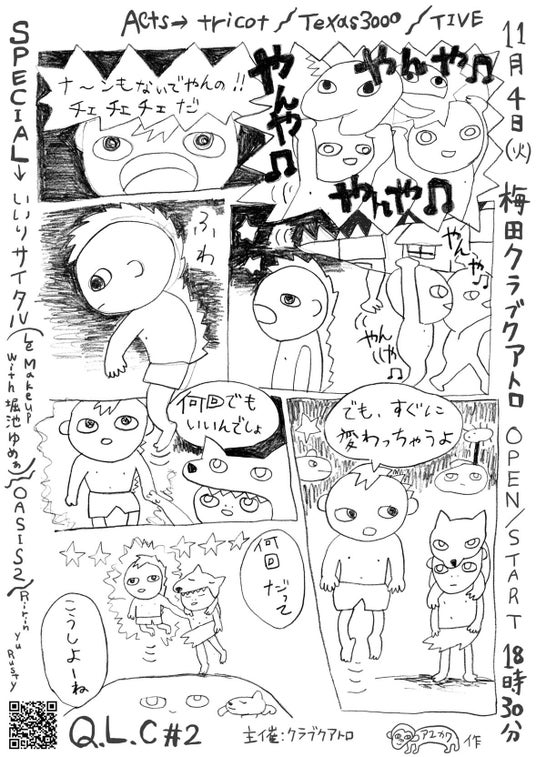 Acts→ tricot / Texas3000 / TIVE
11月4日(火) 梅田クラブクアトロ OPEN/START 18時30分
SPECIAL→ いいリサイタル(Le Makeup with 堀池ゆめぁ)/OASIS2/Ririn yu Rusty
ナ〜ンもないでやんの!!
チェ チェ チェ だ
やんや♫
やんや♫
やんや♫
ふわ
やんや♫
やんや♫
何回でも
いいんでしょ
でも、すぐに
変わっちゃうよ
何回だって
こうしよーね
Q.L.C #2
主催:クラブクアトロ
アユカワ 作